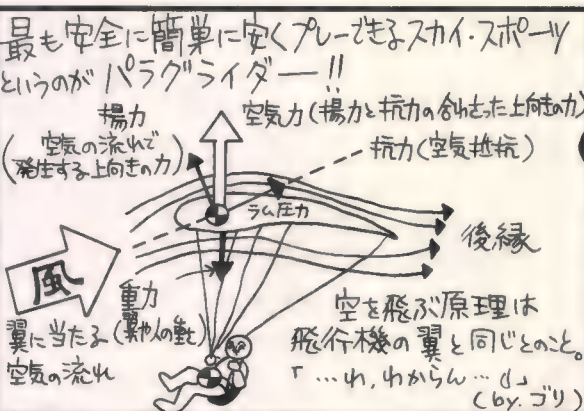 最も安全に簡単に安くプレーできるスカイ・スポーツ
というのがパラグライダー!!
揚力
(空気の流れで
発生する上向きの力)
空気力(揚力と抗力の合わさった上向きの力)
抗力(空気抵抗)
ラム圧力
後縁
風
翼に当たる
空気の流れ
重力
(翼や人の重さ)
空を飛ぶ原理は
飛行機の翼と同じとのこと。
「…わ,わからん…」
(by.ゴリ)